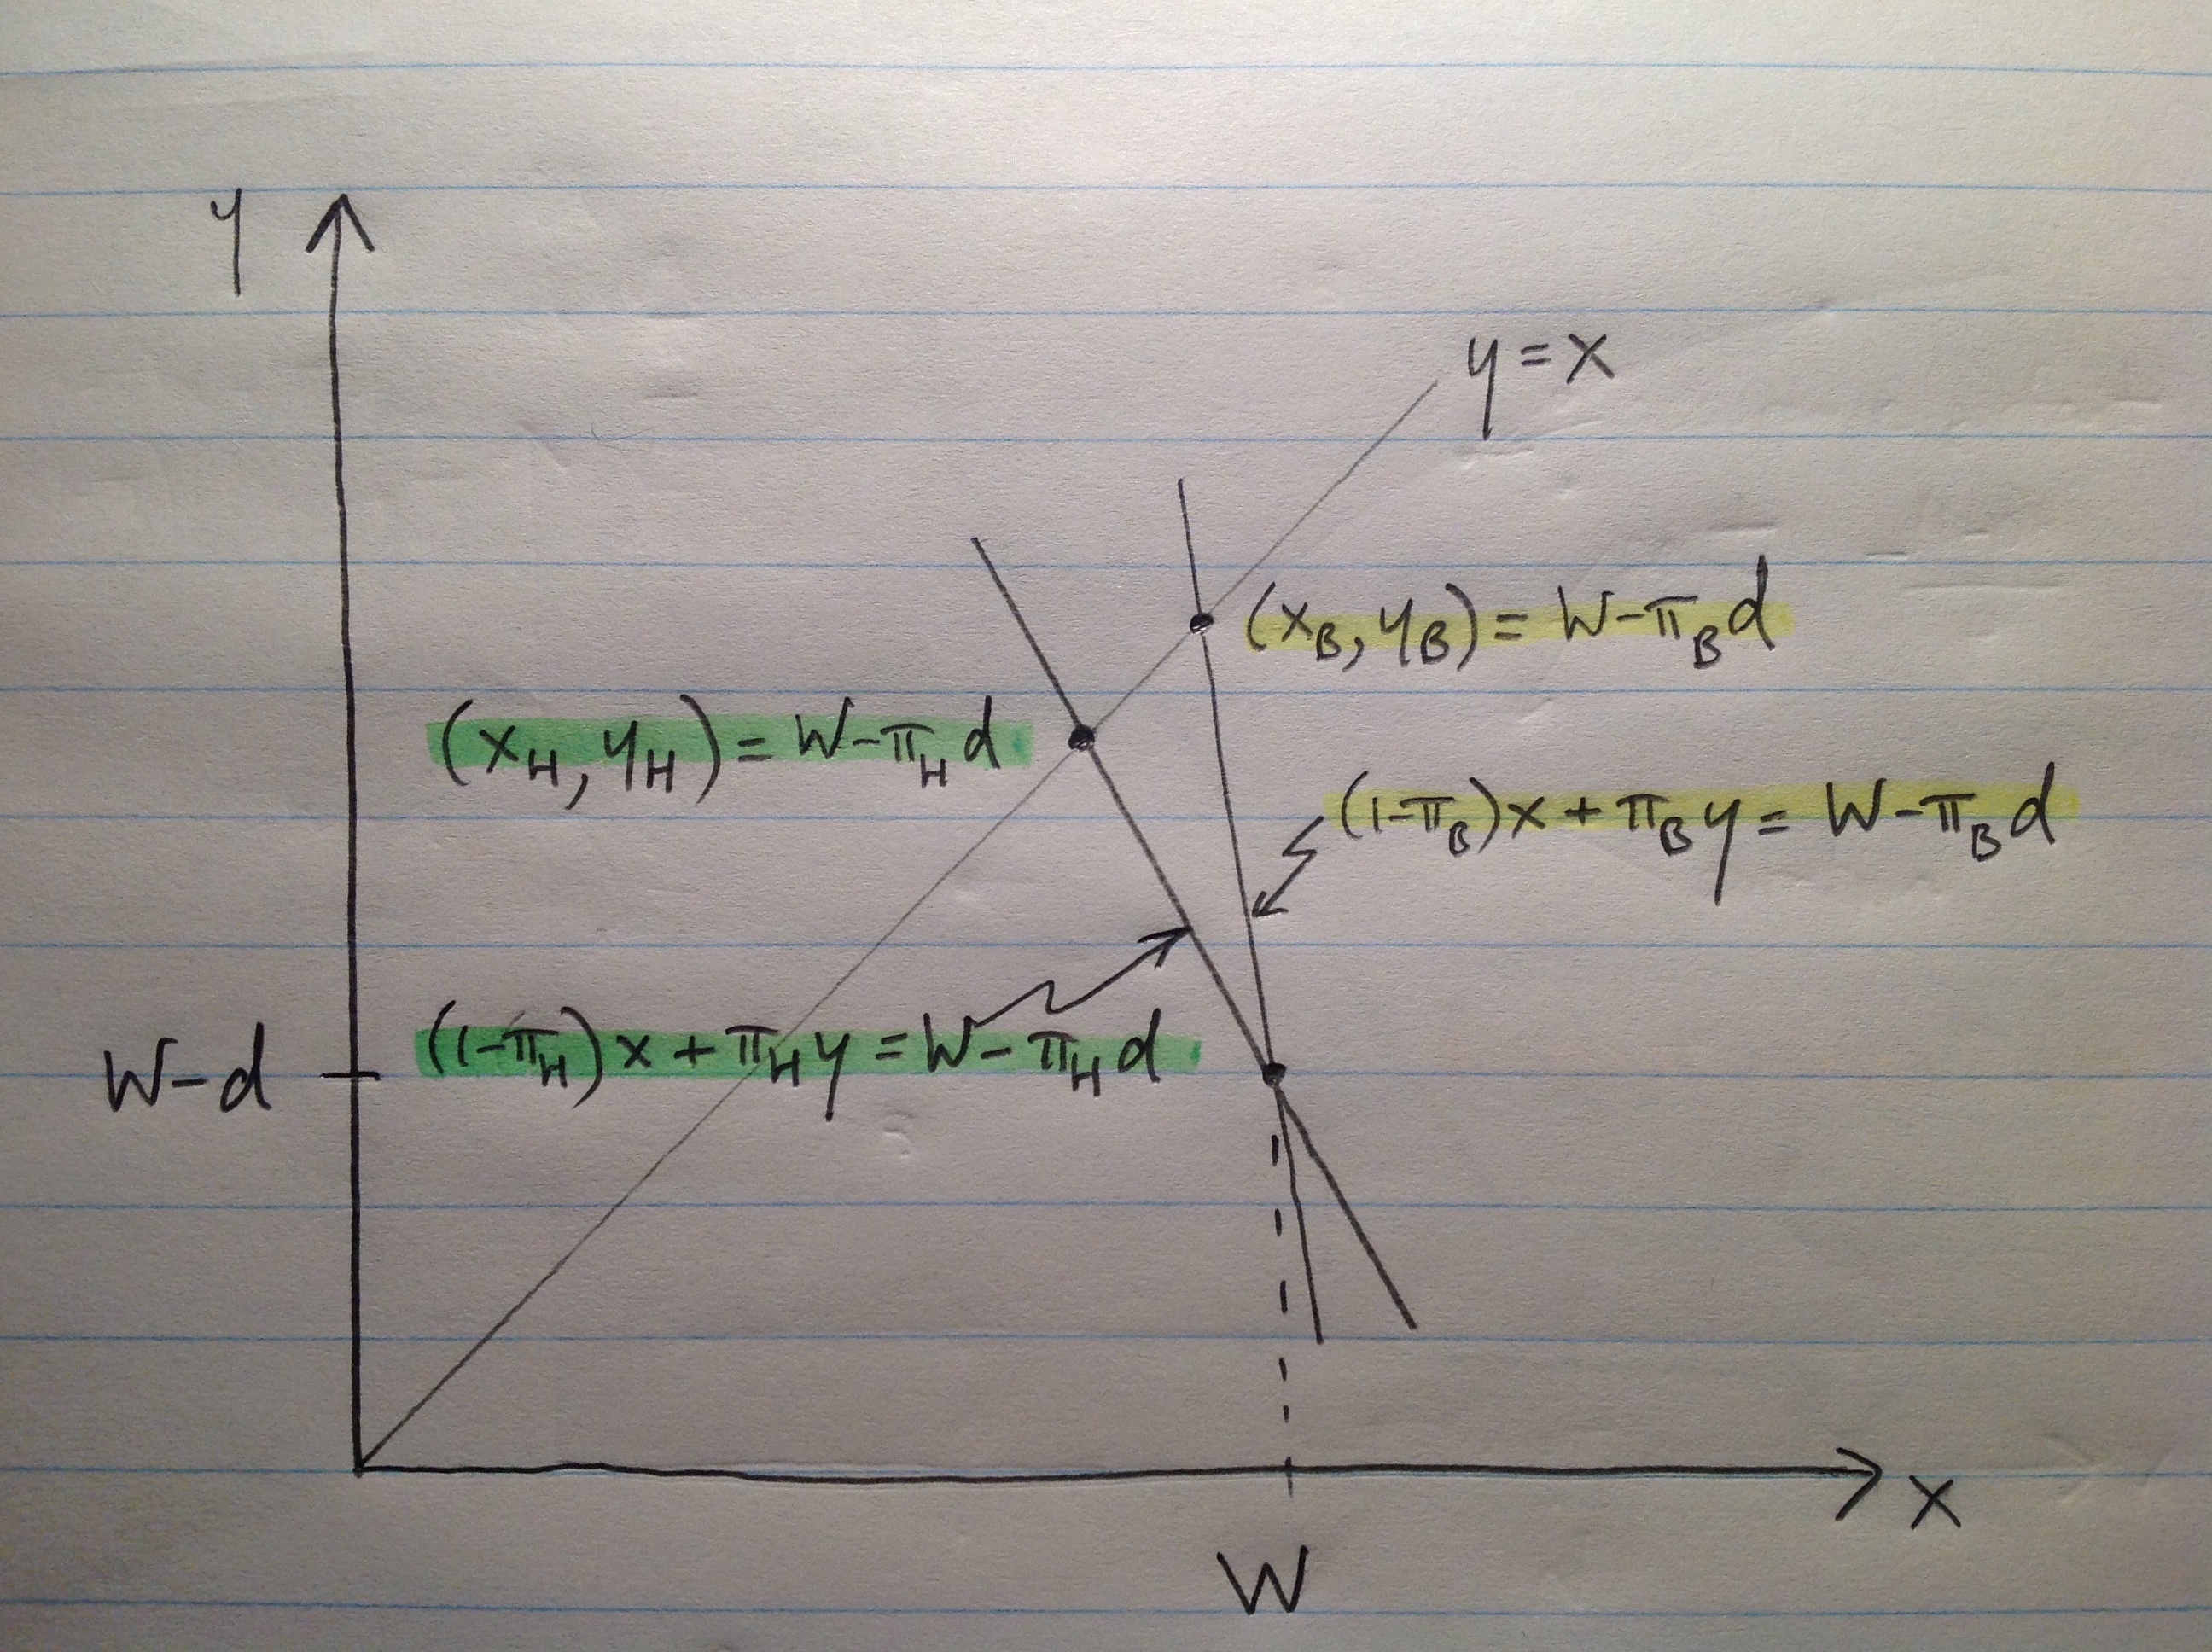 y
y = x
(x_B, y_B) = W-π_B d
(x_H, y_H) = W-π_H d
(1-π_B)x + π_B y = W-π_B d
(1-π_H)x + π_H y = W-π_H d
W-d
x
W